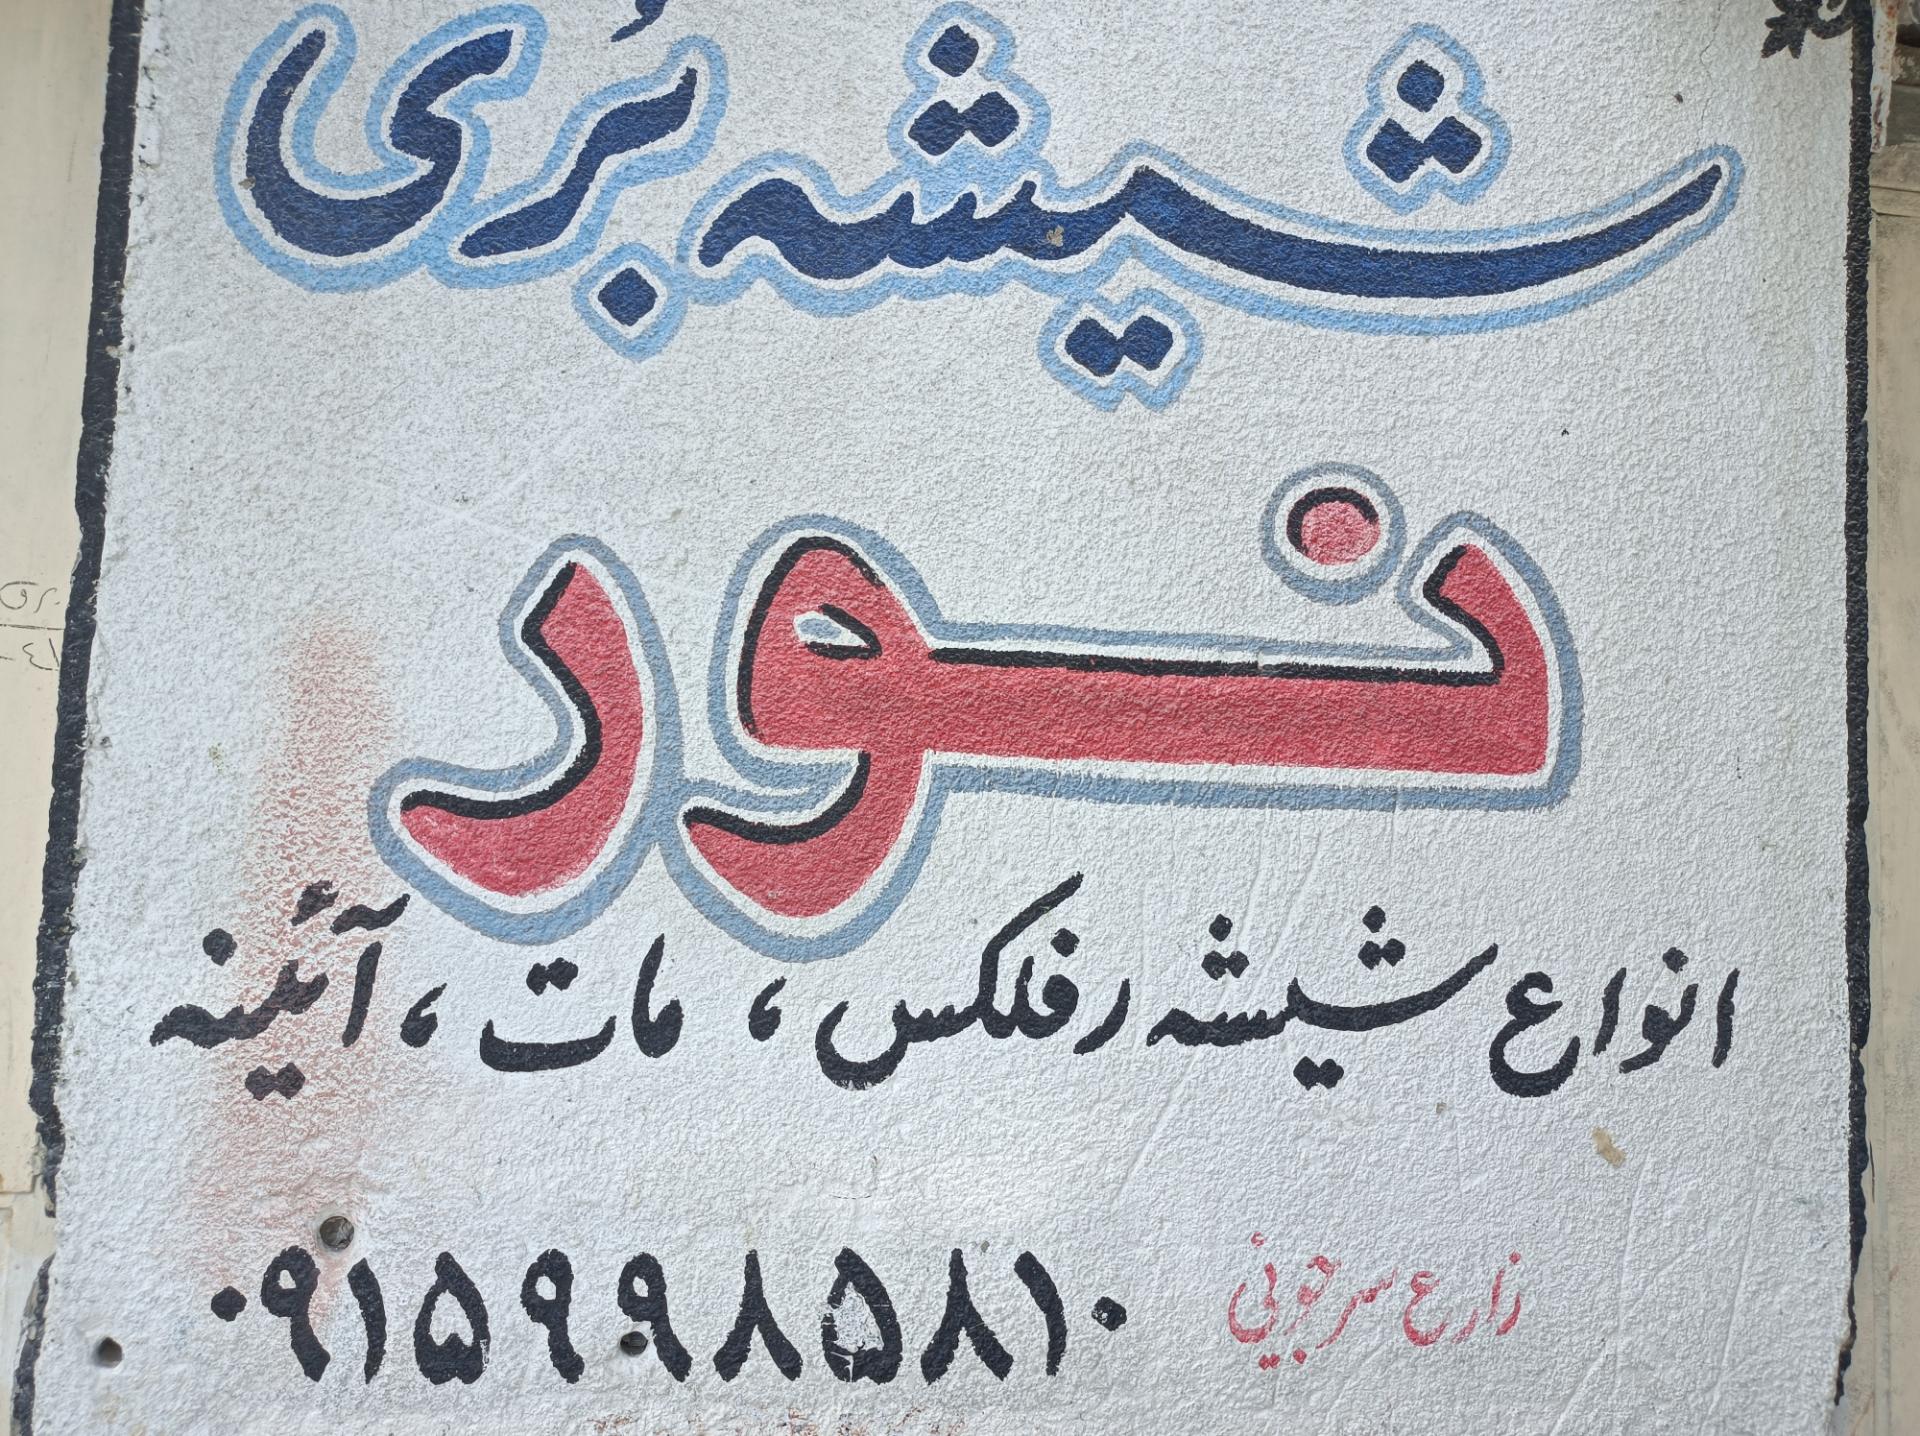 شیشه بُری
نور
انواع شیشه رفلکس، مات، آئینه
۰۹۱۵۹۹۸۵۸۱۰
زارع سرجوئی